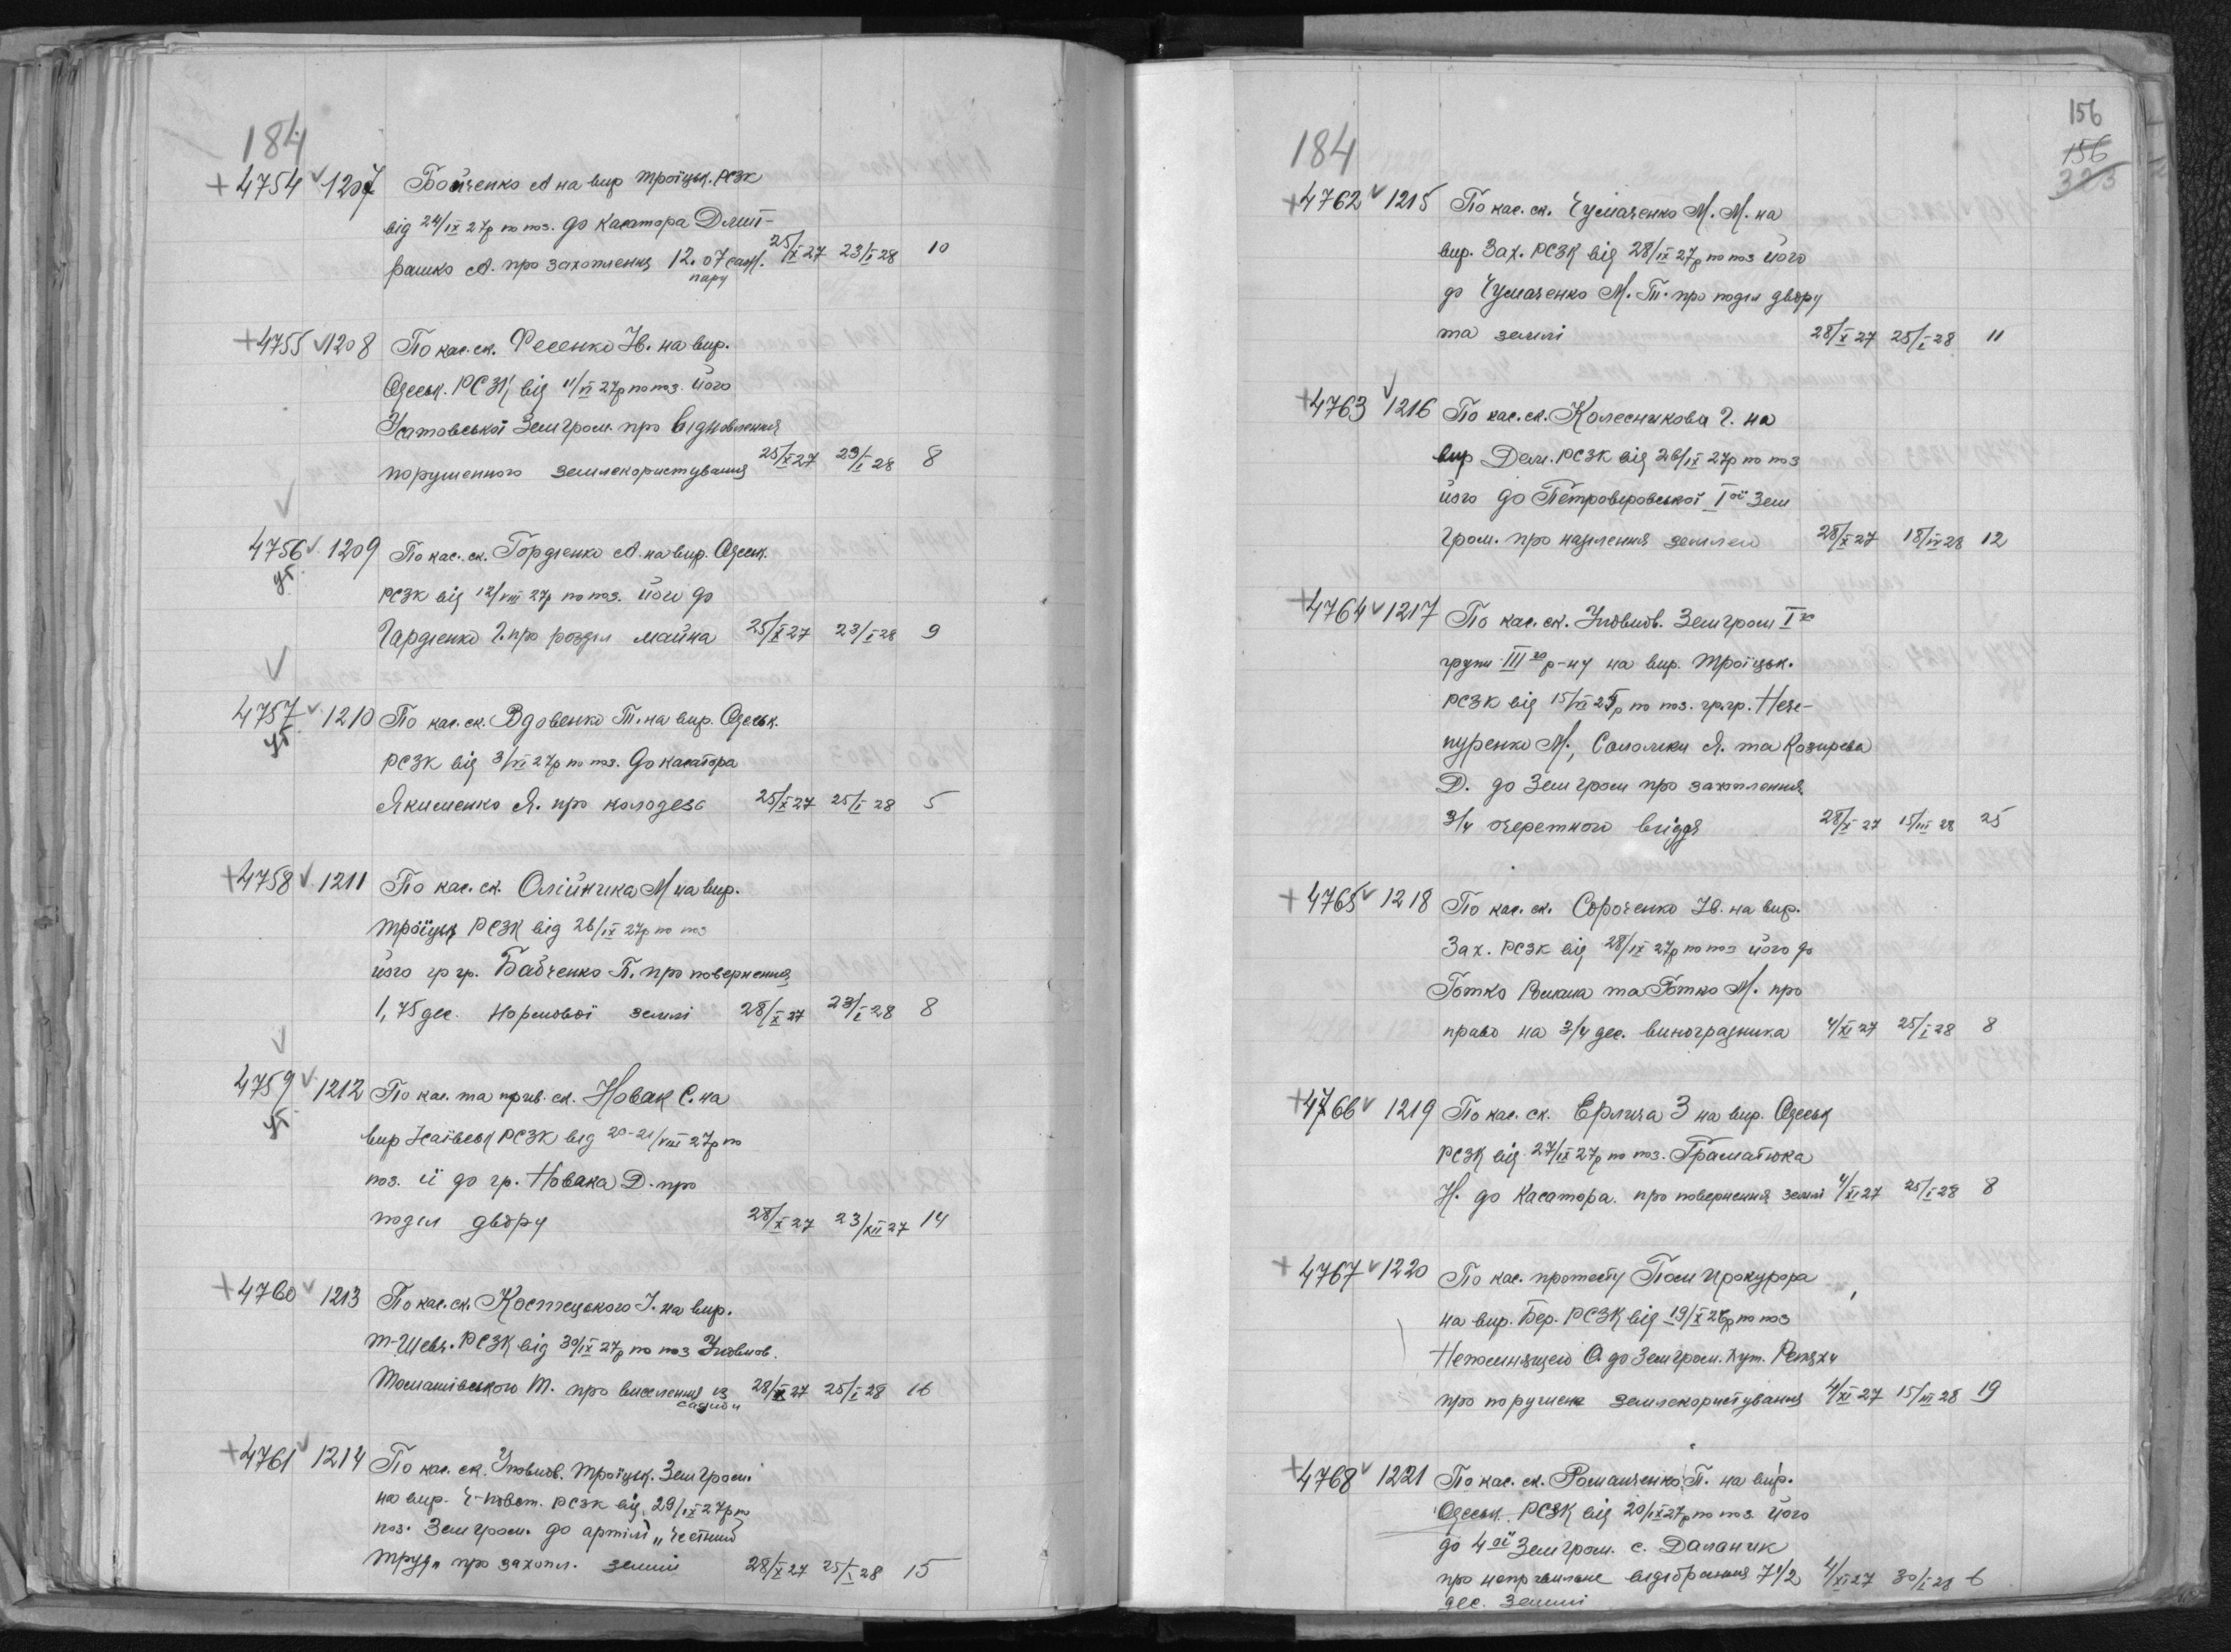 184
+4754 ✓ 1207 Бойченко А на вир Троїцьк. РСЗК
від 24/IX 27р по поз. до касатора Дмит-
рашко А. про захоплення 12.07 саж. 25/X 27 23/I 28 10
пару
+4755 ✓ 1208 По кас. ск. Фесенко Ів. на вир.
Одеськ. РСЗК від 11/VI 27р по поз. його
Усатовської Земгром. про відновлення
порушенного землекористування 25/X 27 23/I 28 8
✓
4756 ✓ 1209 По кас. ск. Гордієнко А. на вир. Одеськ.
РСЗК від 12/VIII 27р по поз. його до
Гардієнко Г. про розділ майна 25/X 27 23/I 28 9
✓
4757 ✓ 1210 По кас. ск. Вдовенко Т. на вир. Одеськ.
РСЗК від 3/VI 27р по поз. до касатора
Якименко Я. про колодезь 25/X 27 25/I 28 5
+4758 ✓ 1211 По кас. ск. Олійника М на вир.
Троїцьк РСЗК від 26/IX 27р по поз
його гр гр. Бабченко П. про повернення
1,75 дес. нормової землі 28/X 27 23/I 28 8
✓
4759 ✓ 1212 По кас. та прив. ск. Новак С. на
вир РСЗК від 20-21/VIII 27р по
поз. її до гр. Новака Д. про
поділ двору 28/X 27 23/XII 27 14
+4760 ✓ 1213 По кас. ск. Костецького І. на вир.
Т-Шевч. РСЗК від 30/IX 27р по поз Уповнов.
Томашівського Т. про виселення із 28/X 27 25/I 28 16
садиби
+4761 ✓ 1214 По кас. ск. Уповнов. Троїцьк. Земгром.
на вир. Ч-повст. РСЗК від 29/IX 27р по
поз. Земгром. до артілі „Чесний
труд" про захопл. землі 28/X 27 25/I 28 15
156
156
323
184
+4762 ✓ 1215 По кас. ск. Чумаченко М. М. на
вир. Зах. РСЗК від 28/IX 27р по поз його
до Чумаченко М. Т. про поділ двору
та землі 28/X 27 25/I 28 11
+4763 ✓ 1216 По кас. ск. Колесникова Г. на
вир Дем. РСЗК від 26/IX 27р по поз
його до Петроверовської Iої Зем
гром. про наділення землею 28/X 27 18/IV 28 12
+4764 ✓ 1217 По кас. ск. Уповнов. Земгром I
групи III го р-ну на вир. Троїцьк.
РСЗК від 15/XI 25р по поз. гр.гр. Нече-
пуренко М., Соломки Я. та Козирева
Д. до Земгром про захоплення
3/4 очеретного угіддя 28/X 27 15/III 28 25
+4765 ✓ 1218 По кас. ск. Сороченко Ів. на вир.
Зах. РСЗК від 28/IX 27р по поз його до
Готко Романа та Готко М. про
право на 3/4 дес. виноградника 4/XI 27 25/I 28 8
+4766 ✓ 1219 По кас. ск. Ерлиха З на вир. Одеськ
РСЗК від 27/IX 27р по поз. Граматюка
Н. до касатора. про повернення землі 4/XI 27 25/I 28 8
+4767 ✓ 1220 По кас. протесту Пом Прокурора
на вир. Бер. РСЗК від 19/X 26р по поз
О до Земгром. хут. Репяхи
про порушене землекористування 4/XI 27 15/III 28 19
+4768 ✓ 1221 По кас. ск. Романченко П. на вир.
Одеськ. РСЗК від 20/IX 27р по поз. його
до 4ої Земгром. с. Даланик
про неправильне відібрання 7 1/2 4/XI 27 30/I 28 6
дес. землі